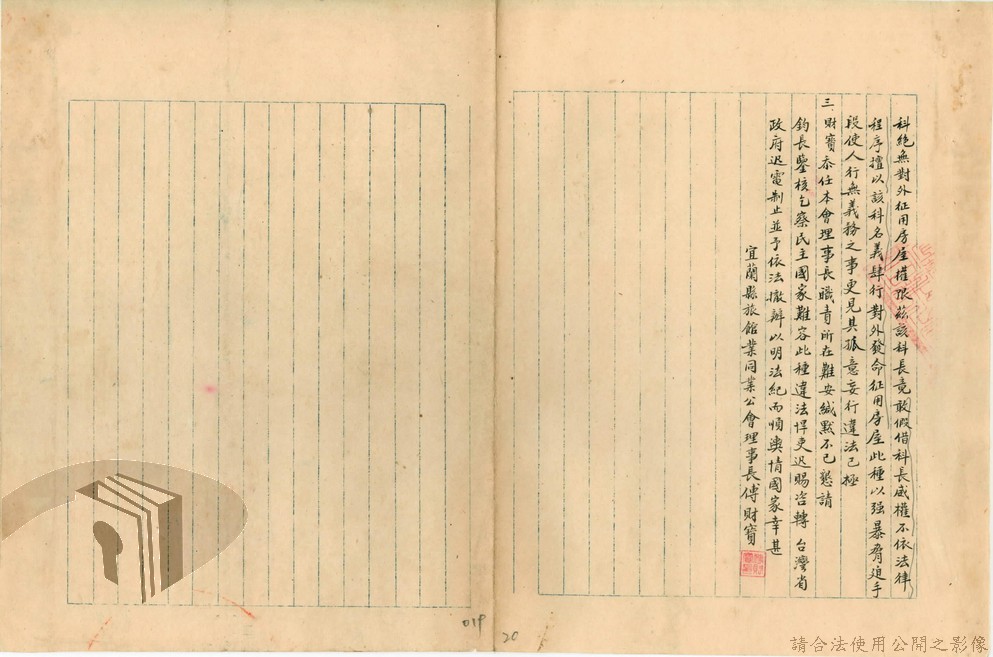 科絕無對外征用房屋權限茲該科長竟敢假借科長威權不依法律
程序擅以該科名義肆行對外發命征用房屋此種以强暴脅迫手
段使人行無義務之事更見其振意妄行違法已極
三、財寶忝任本會理事長職責所在難安緘默不已懇請
鈞長鑒核乞察民主國家難容此種違法悍吏迟賜咨轉 台灣省
政府迟電制止並予依法撤辦以明法紀而順輿情國家幸甚
宜蘭縣旅館業同業公會理事長傅財寶
019
20
請合法使用公開之影像